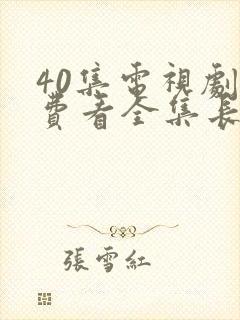 40集電視劇
費看全集長
張雪紅